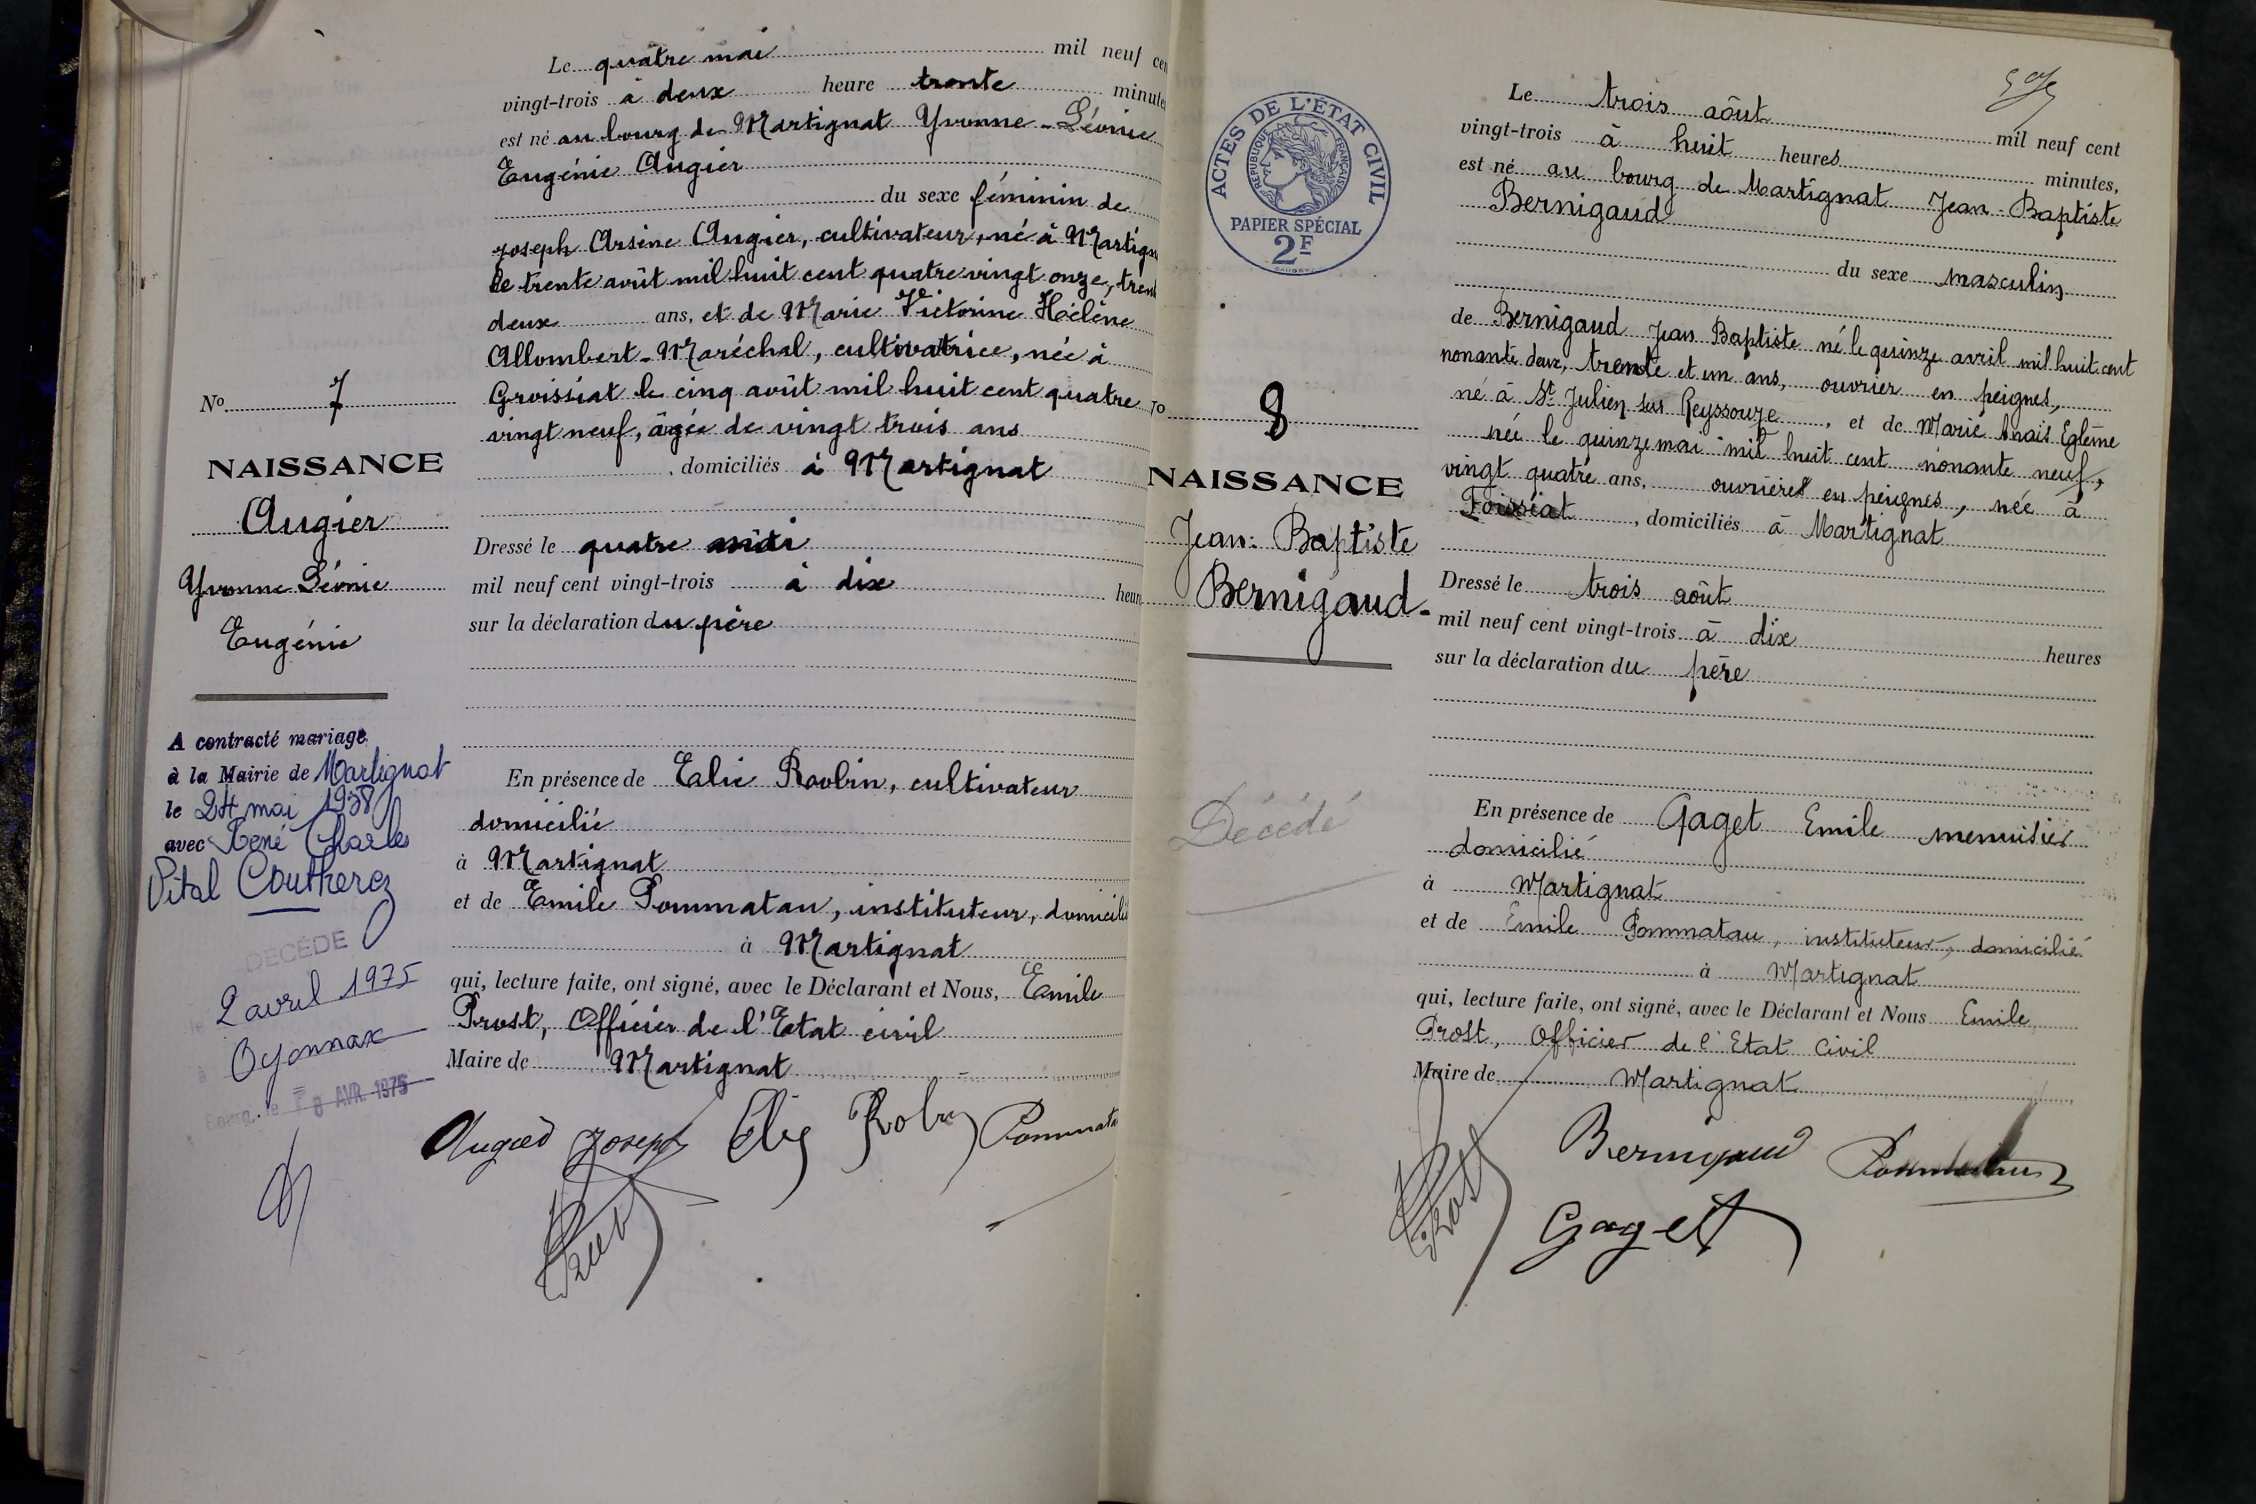 Le quatre mai mil neuf cen
vingt-trois à deux heure trente minute
est né au bourg de Martignat Yvonne-Léonie
Eugénie Augier
du sexe féminin de
Joseph Arsène Augier, cultivateur, né à Martign
le trente août mil huit cent quatre vingt onze, tren
deux ans, et de Marie Victorine Hélène
Allombert-Maréchal, cultivatrice, née à
Groissiat le cinq août mil huit cent quatre
vingt neuf, âgée de vingt trois ans
, domiciliés à Martignat
Dressé le quatre mai
mil neuf cent vingt-trois à dix heur
sur la déclaration du père
En présence de Elie Roblin, cultivateur
domicilié
à Martignat
et de Emile Pommatau, instituteur, domicilié
à Martignat
qui, lecture faite, ont signé, avec le Déclarant et Nous, Emile
Prost, Officier de l'Etat civil
Maire de Martignat
Augier Joseph Elie Pommata
Prost
No 7
NAISSANCE
Augier
Yvonne Léonie
Eugénie
A contracté mariage
à la Mairie de Martignat
le 24 mai 1938
avec René Charles
Vital Couttherez
DÉCÉDÉ
le 2 avril 1975
à Oyonnax
Bourg, le 8 AVR. 1975
ACTES DE L'ÉTAT CIVIL
RÉPUBLIQUE FRANÇAISE
PAPIER SPÉCIAL
2F
No 8
NAISSANCE
Jean-Baptiste
Bernigaud
Décédé
Le trois août mil neuf cent
vingt-trois à huit heures minutes,
est né au bourg de Martignat Jean-Baptiste
Bernigaud
du sexe masculin
de Bernigaud Jean Baptiste né le quinze avril mil huit cent
nonante deux, trente et un ans, ouvrier en peignes,
né à St Julien sur Reyssouze, et de Marie Anaïs Eglème
née le quinze mai mil huit cent nonante neuf,
vingt quatre ans, ouvrière en peignes, née à
Foissiat, domiciliés à Martignat
Dressé le trois août
mil neuf cent vingt-trois à dix heures
sur la déclaration du père
En présence de Gaget Emile menuisier
domicilié
à Martignat
et de Emile Pommatau, instituteur, domicilié
à Martignat
qui, lecture faite, ont signé, avec le Déclarant et Nous Emile
Prost, Officier de l'Etat Civil
Maire de Martignat
Bernigaud Pommatau
Prost Gaget